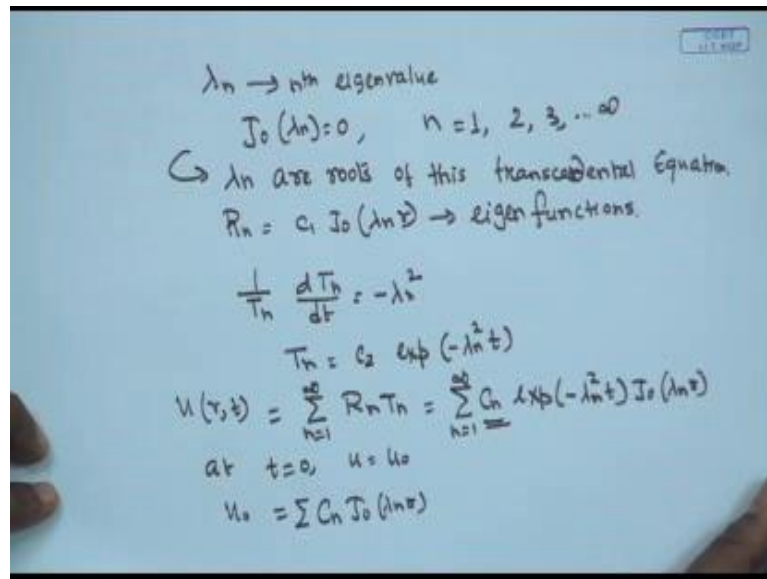 λn → nth eigenvalue
J0 (λn)=0, n=1, 2, 3, ... ∞
↪ λn are roots of this transcendental Equation.
Rn = c1 J0 (λn r) → eigen functions.
1/Tn dTn/dt = -λn^2
Tn = c2 exp (-λn^2 t)
u(r,t) = ∑_{n=1}^{∞} Rn Tn = ∑_{n=1}^{∞} Cn exp(-λn^2 t) J0 (λn r)
at t=0, u = u0
u0 = ∑ Cn J0 (λn r)